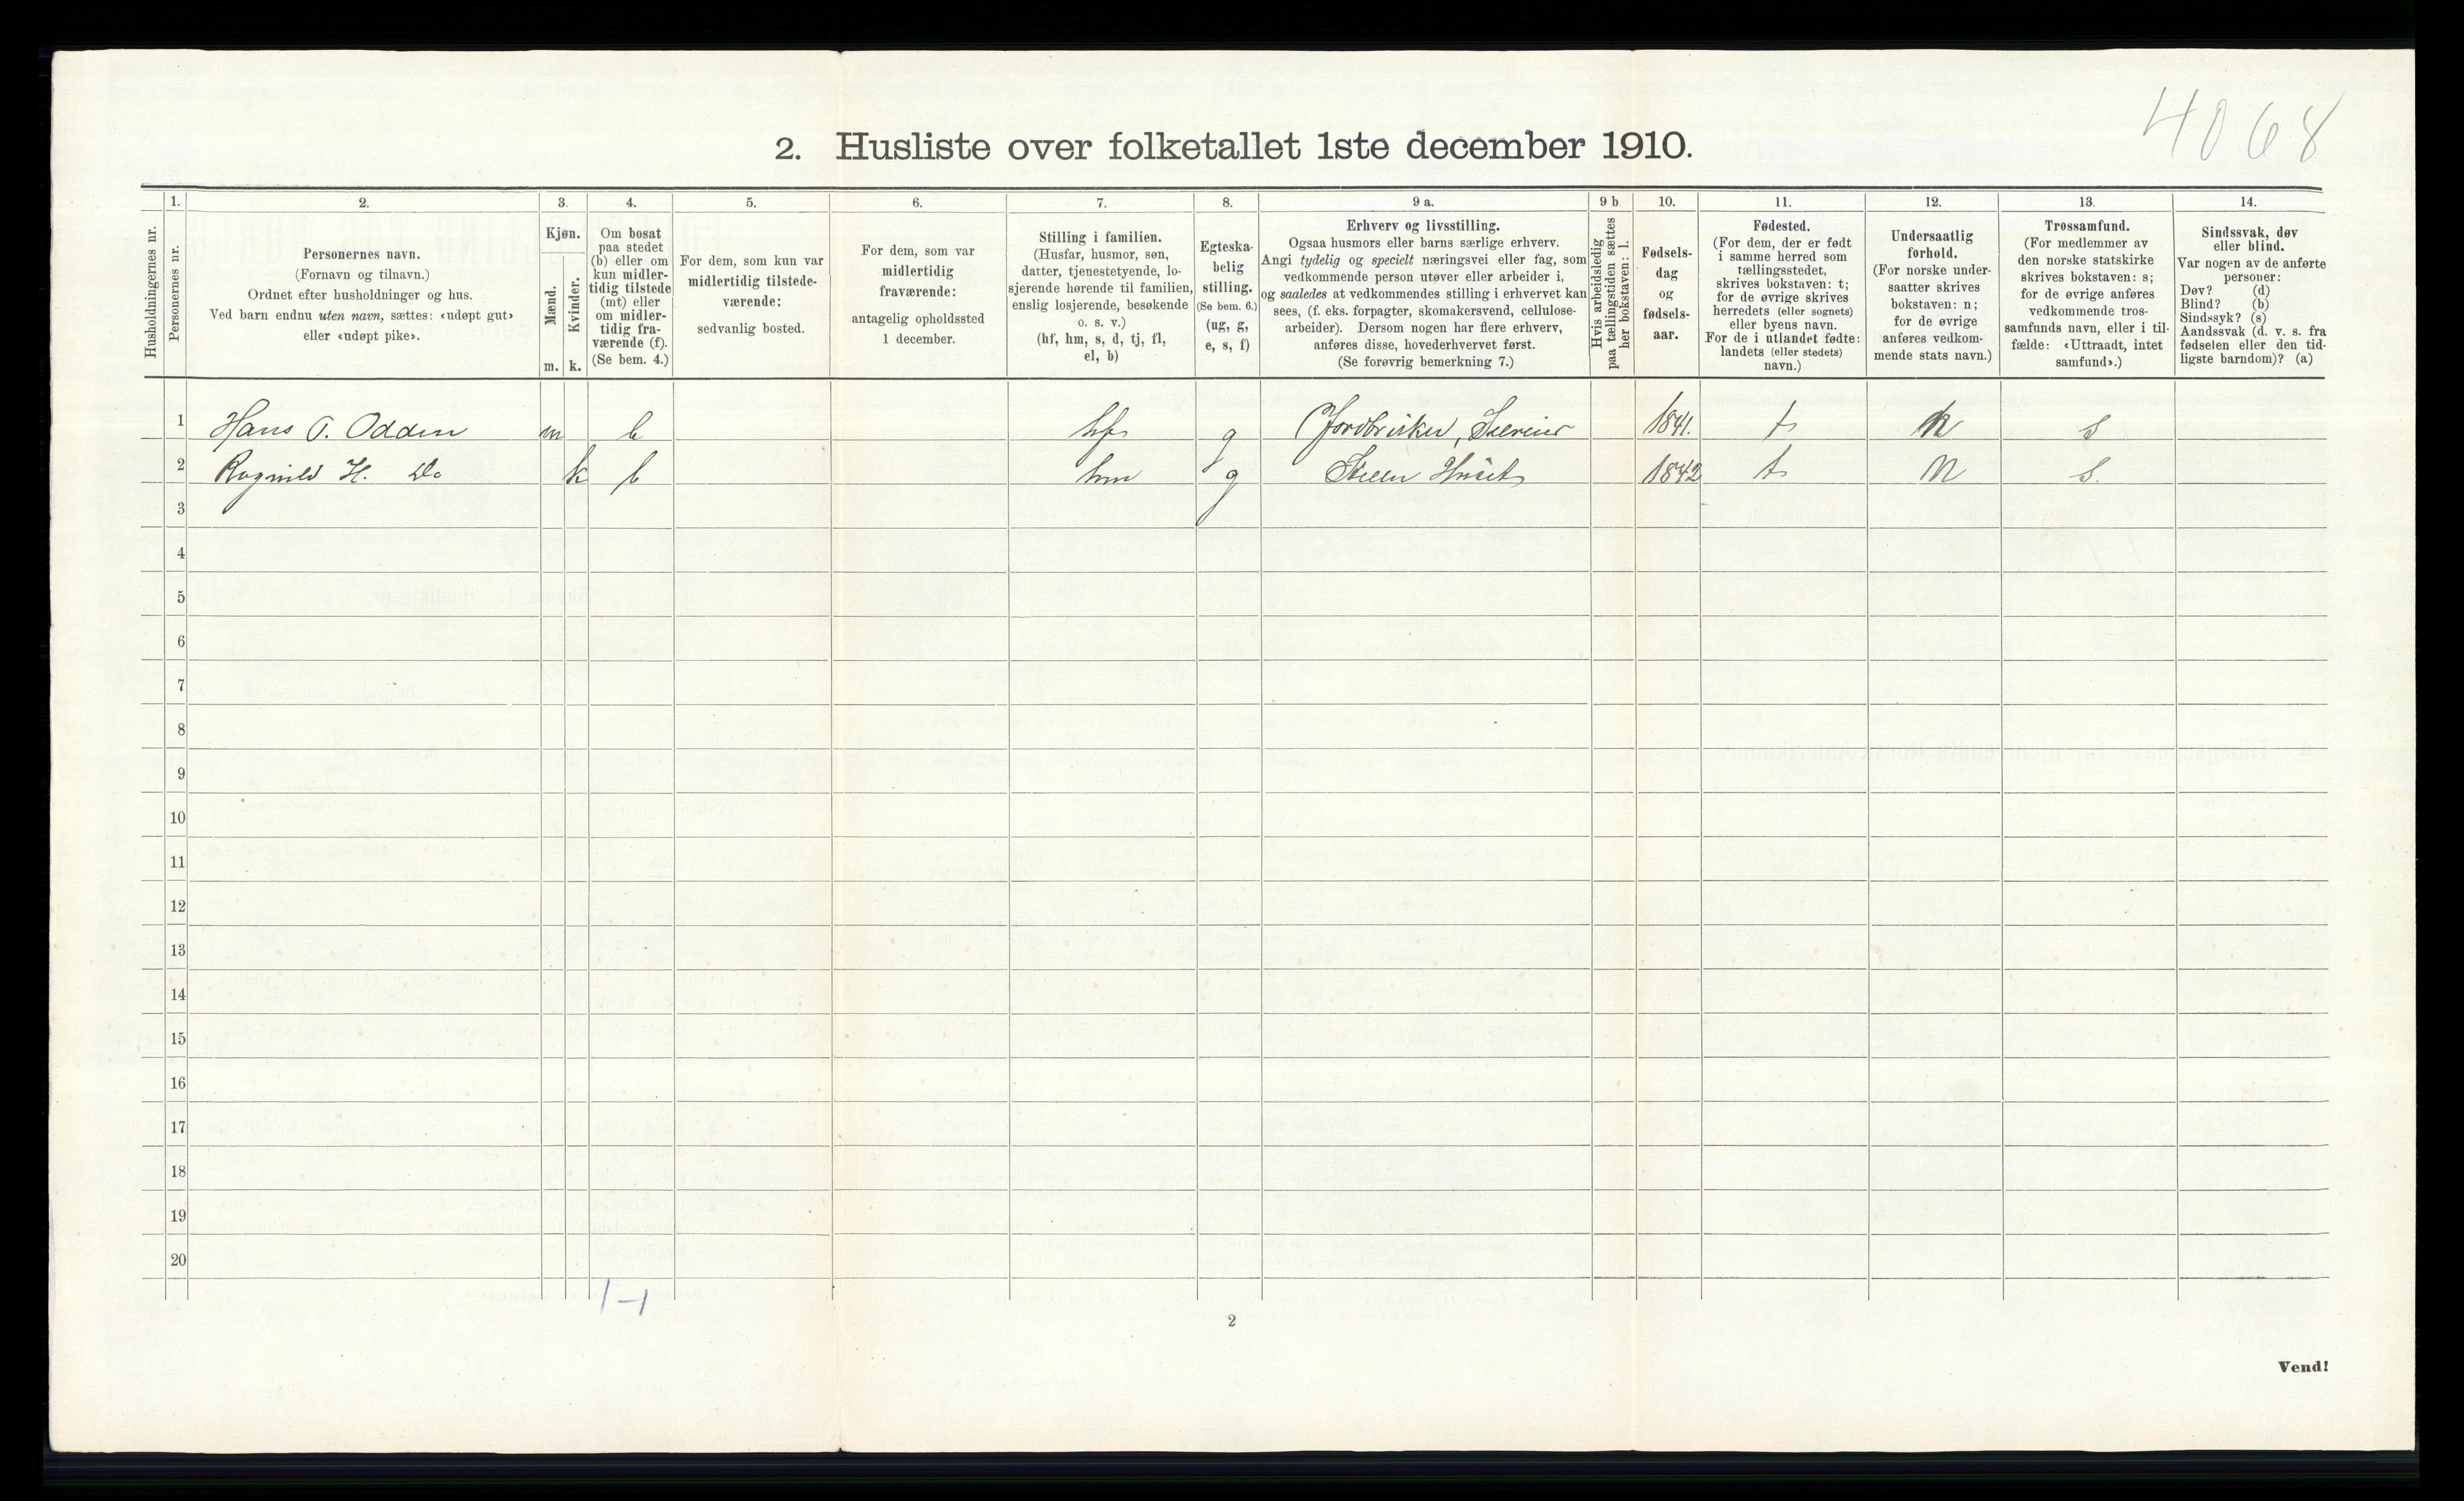 4068
2. Husliste over folketallet 1ste december 1910.
1. 2. 3. 4. 5. 6. 7. 8. 9 a. 9 b. 10. 11. 12. 13. 14.
Husholdningernes nr.
Personernes nr.
Personernes navn.
(Fornavn og tilnavn.)
Ordnet efter husholdninger og hus.
Ved barn endnu uten navn, sættes: «udøpt gut»
eller «udøpt pike».
Kjøn.
Mænd.
Kvinder.
m. k.
Om bosat
paa stedet
(b) eller om
kun midler-
tidig tilstede
(mt) eller
om midler-
tidig fra-
værende (f).
(Se bem. 4.)
For dem, som kun var
midlertidig tilstede-
værende:
sedvanlig bosted.
For dem, som var
midlertidig
fraværende:
antagelig opholdssted
1 december.
Stilling i familien.
(Husfar, husmor, søn,
datter, tjenestetyende, lo-
sjerende hørende til familien,
enslig losjerende, besøkende
o. s. v.)
(hf, hm, s, d, tj, fl,
el, b)
Egteska-
belig
stilling.
(Se bem. 6.)
(ug, g,
e, s, f)
Erhverv og livsstilling.
Ogsaa husmors eller barns særlige erhverv.
Angi tydelig og specielt næringsvei eller fag, som
vedkommende person utøver eller arbeider i,
og saaledes at vedkommendes stilling i erhvervet kan
sees, (f. eks. forpagter, skomakersvend, cellulose-
arbeider). Dersom nogen har flere erhverv,
anføres disse, hovederhvervet først.
(Se forøvrig bemerkning 7.)
Hvis arbeidsledig
paa tællingstiden sættes
her bokstaven: l.
Fødsels-
dag
og
fødsels-
aar.
Fødested.
(For dem, der er født
i samme herred som
tællingsstedet,
skrives bokstaven: t;
for de øvrige skrives
herredets (eller sognets)
eller byens navn.
For de i utlandet fødte:
landets (eller stedets)
navn.)
Undersaatlig
forhold.
(For norske under-
saatter skrives
bokstaven: n;
for de øvrige
anføres vedkom-
mende stats navn.)
Trossamfund.
(For medlemmer av
den norske statskirke
skrives bokstaven: s;
for de øvrige anføres
vedkommende tros-
samfunds navn, eller i til-
fælde: «Uttraadt, intet
samfund».)
Sindssvak, døv
eller blind.
Var nogen av de anførte
personer:
Døv? (d)
Blind? (b)
Sindssyk? (s)
Aandssvak (d. v. s. fra
fødselen eller den tid-
ligste barndom)? (a)
1 Hans O. Odden m b hf g Jordbruker, Selveier 1841. t n s
2 Ragnild H. Do k b hm g Steller Huset 1842 t N s.
3
4
5
6
7
8
9
10
11
12
13
14
15
16
17
18
19
20
1-1
2
Vend!